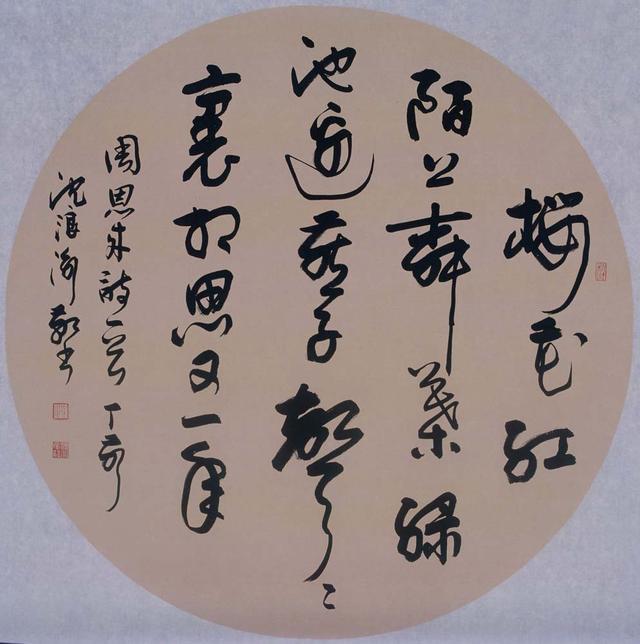 櫻花紅
陌上柳葉綠
池邊燕子聲々
裏相思又一年
周恩來詩一首 丁亥
沈浪 敬書